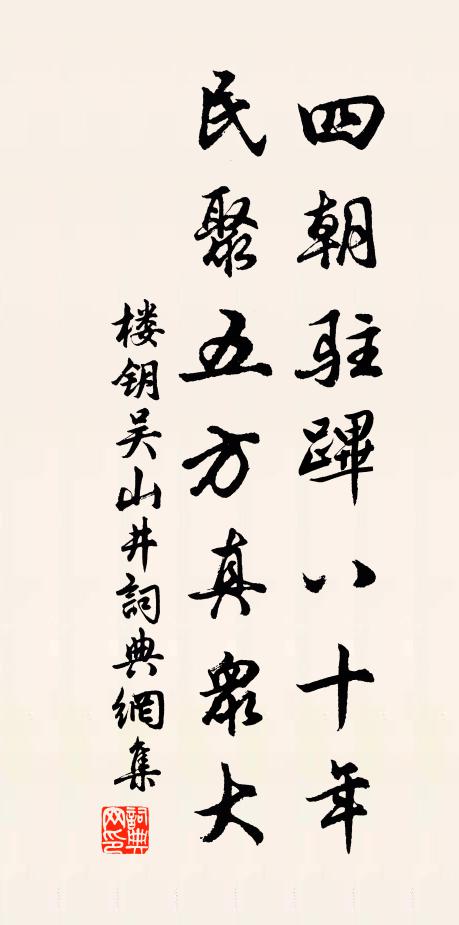 四朝駐蹕八十年
民聚五方真眾大
楼钥吴山井詞典網集
詞典网印